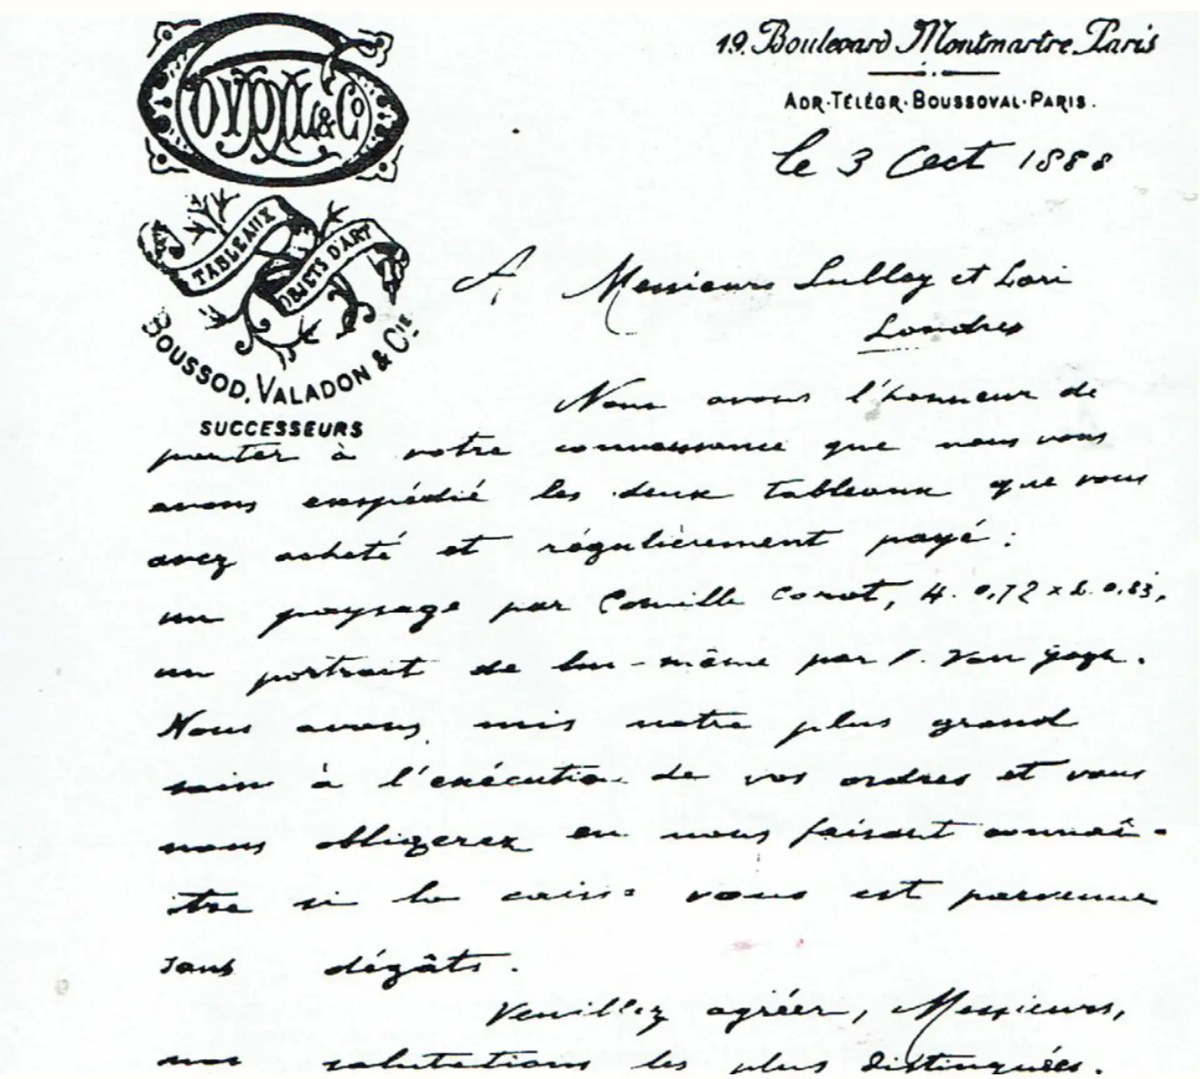 GOUPIL & Co
TABLEAUX
OBJETS D'ART
BOUSSOD, VALADON & CIE
SUCCESSEURS
19. Boulevard Montmartre. Paris
ADR. TÉLÉGR. BOUSSOVAL. PARIS.
le 3 Oct 1888
A Messieurs Sulley et Lori
Londres
Nous avons l'honneur de
porter à votre connaissance que nous vous
avons expédié les deux tableaux que vous
avez acheté et régulièrement payé :
un paysage par Camille Corot, H. 0,72 x L. 0,83,
un portrait de lui-même par V. Van Gogh.
Nous avons mis notre plus grand
soin à l'exécution de vos ordres et vous
nous obligerez en nous faisant connaî-
tre si la caisse vous est parvenue
sans dégâts.
Veuillez agréer, Messieurs,
nos salutations les plus distinguées.